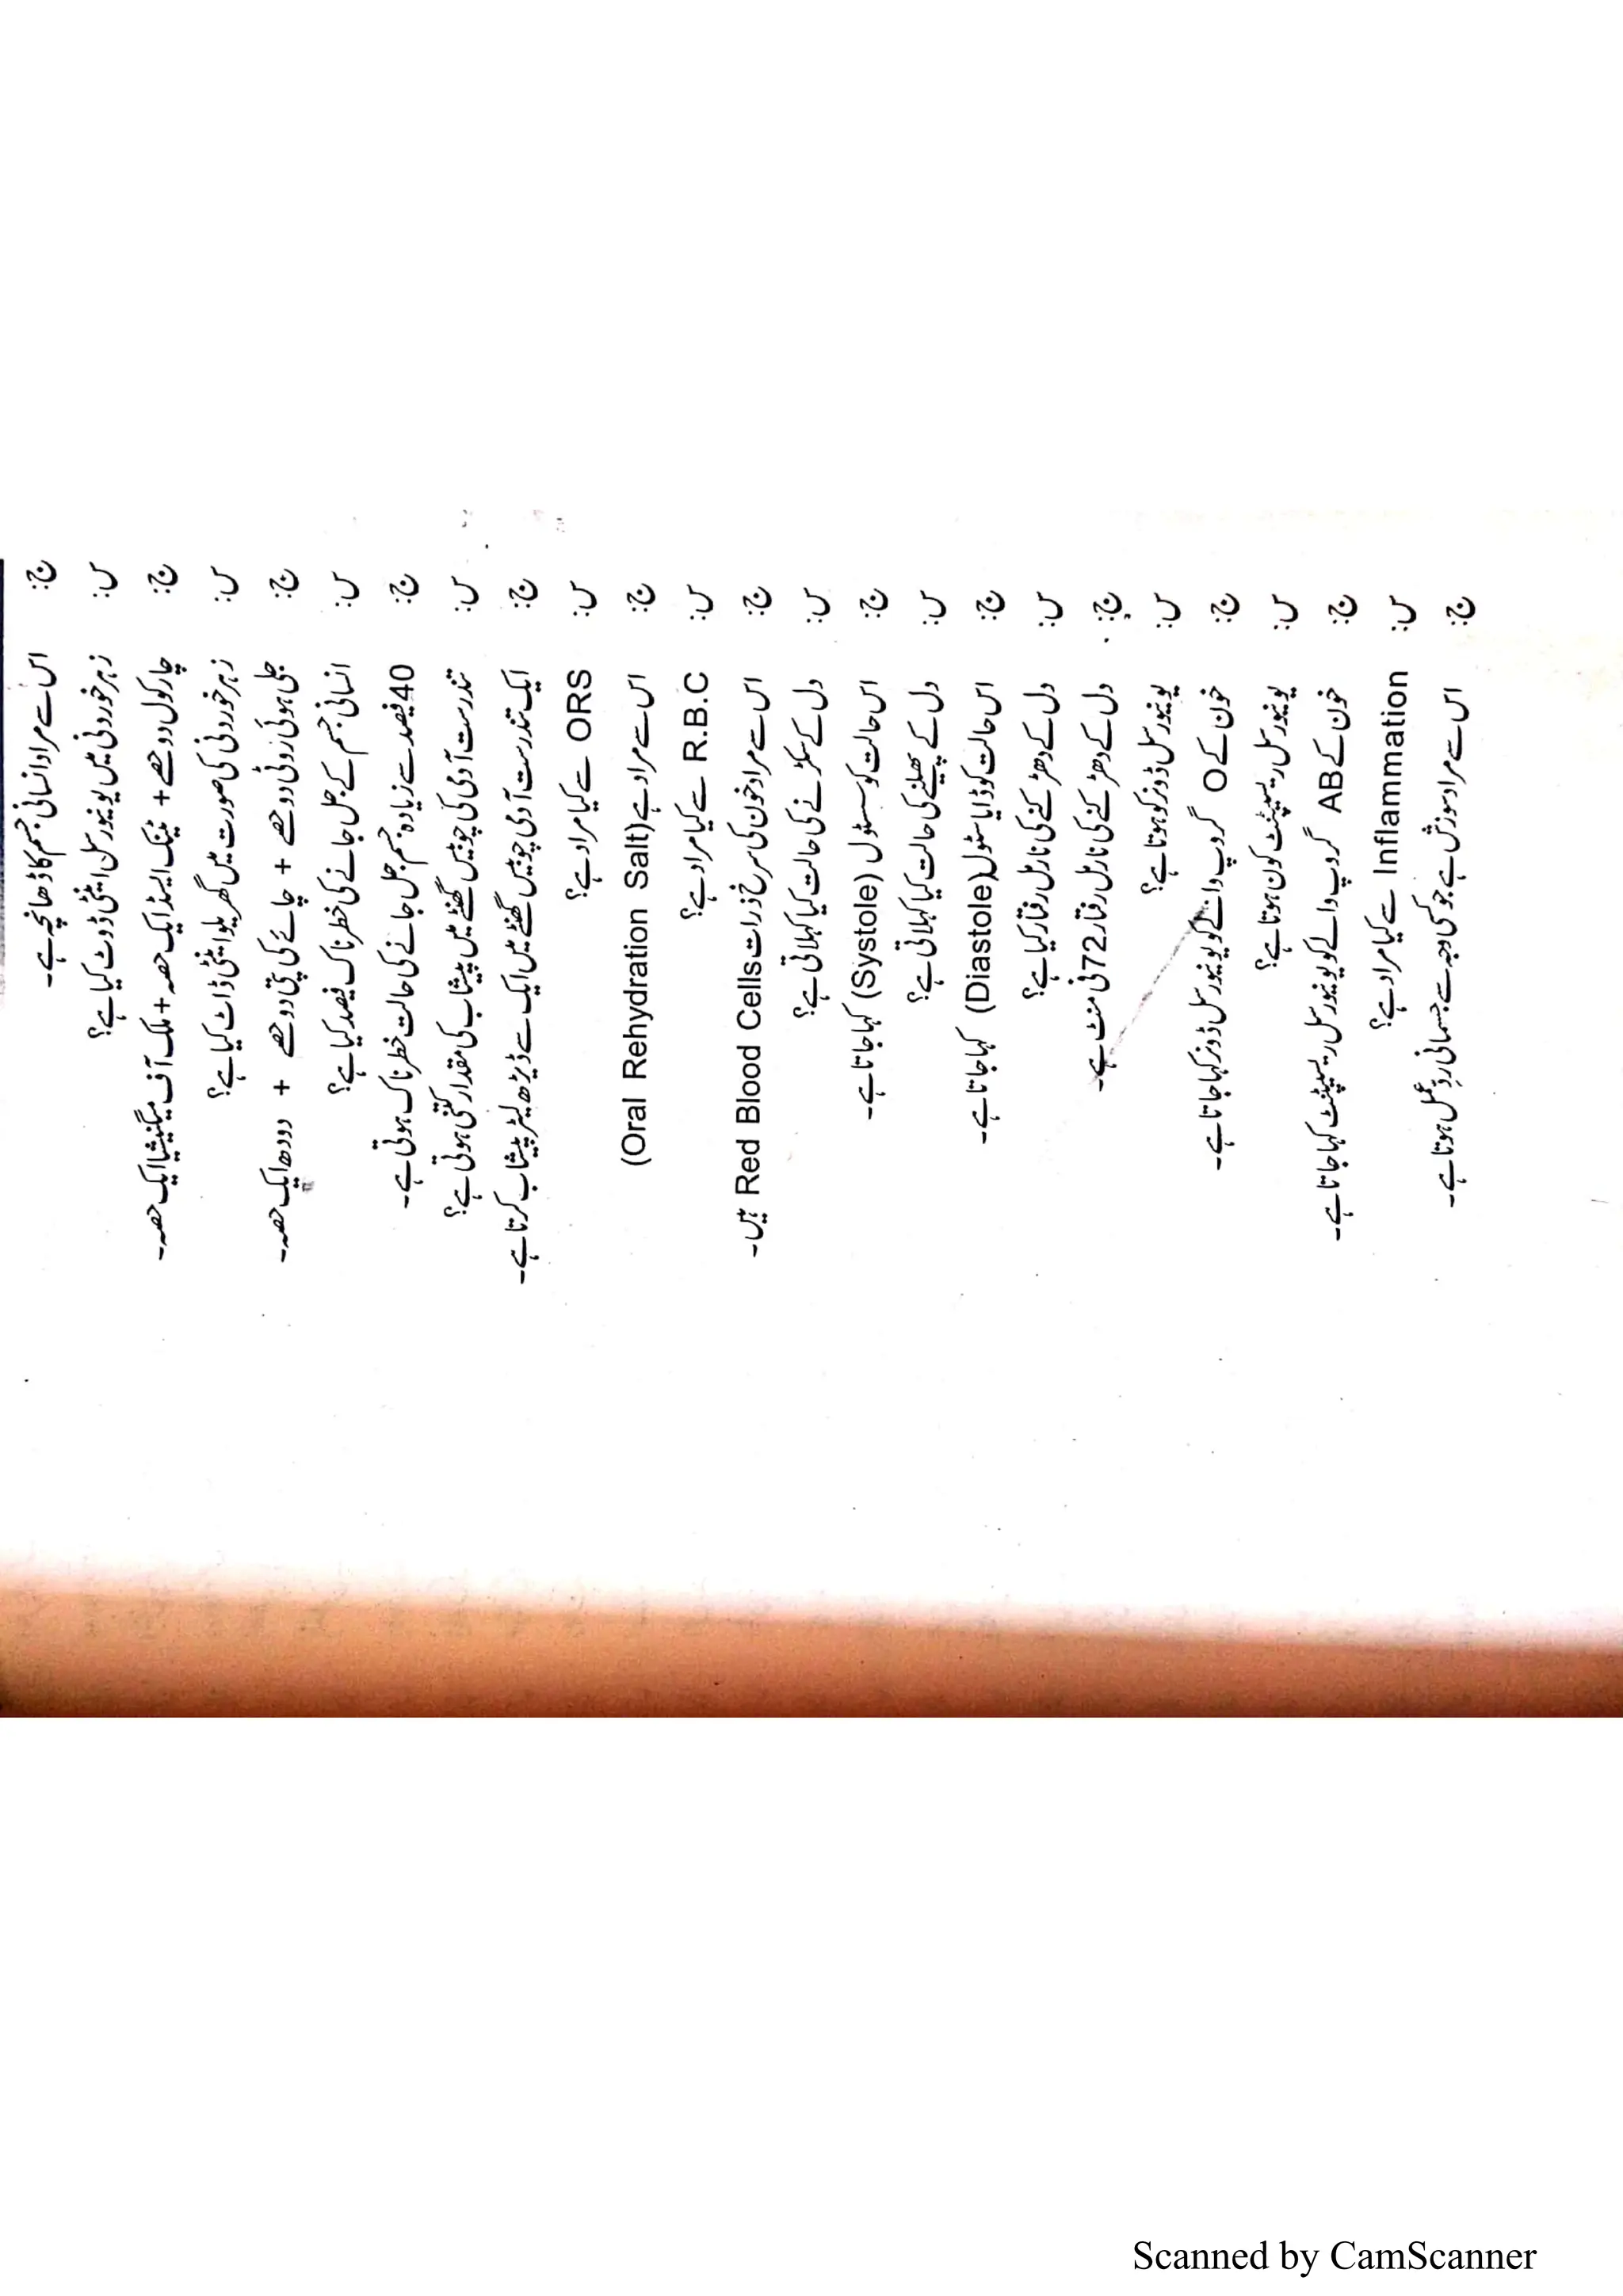 ج: اس سے مراد انسانی جسم کا ڈھانچہ ہے۔
س: زہر خوردنی میں یونیورسل اینٹی ڈوٹ کیا ہے؟
ج: چارکول دو حصے + ٹینک ایسڈ ایک حصہ + ملک آف میگنیشیا ایک حصہ۔
س: زہر خوردنی کی صورت میں گھریلو اینٹی ڈاٹ کیا ہے؟
ج: جلی ہوئی روٹی دو حصے + چائے کی پتی دو حصے + دودھ ایک حصہ۔
س: انسانی جسم کے جل جانے کی خطرناک فیصد کیا ہے؟
ج: 40 فیصد سے زیادہ جسم جل جانے کی حالت خطرناک ہوتی ہے۔
س: تندرست آدمی کی چوبیس گھنٹے میں پیشاب کی مقدار کتنی ہوتی ہے؟
ج: ایک تندرست آدمی چوبیس گھنٹے میں ایک سے ڈیڑھ لیٹر پیشاب کرتا ہے۔
س: ORS سے کیا مراد ہے؟
ج: اس سے مراد ہے (Oral Rehydration Salt)
س: R.B.C سے کیا مراد ہے؟
ج: اس سے مراد خون کی سرخ ذرات Red Blood Cells ہیں۔
س: دل کے سکڑنے کی حالت کیا کہلاتی ہے؟
ج: اس حالت کو سسٹول (Systole) کہا جاتا ہے۔
س: دل کے پھیلنے کی حالت کیا کہلاتی ہے؟
ج: اس حالت کو ڈایاسٹول (Diastole) کہا جاتا ہے۔
س: دل کے دھڑکنے کی نارمل رفتار کیا ہے؟
ج: دل کے دھڑکنے کی نارمل رفتار 72 فی منٹ ہے۔
س: یونیورسل ڈونر کو ہوتا ہے؟
ج: خون کے O گروپ والے کو یونیورسل ڈونر کہا جاتا ہے۔
س: یونیورسل ریسیپنٹ کون ہوتا ہے؟
ج: خون کے AB گروپ والے کو یونیورسل ریسیپنٹ کہا جاتا ہے۔
س: Inflammation سے کیا مراد ہے؟
ج: اس سے مراد سوزش ہے جو کسی وجہ سے جسمانی ردِعمل ہوتا ہے۔
Scanned by CamScanner